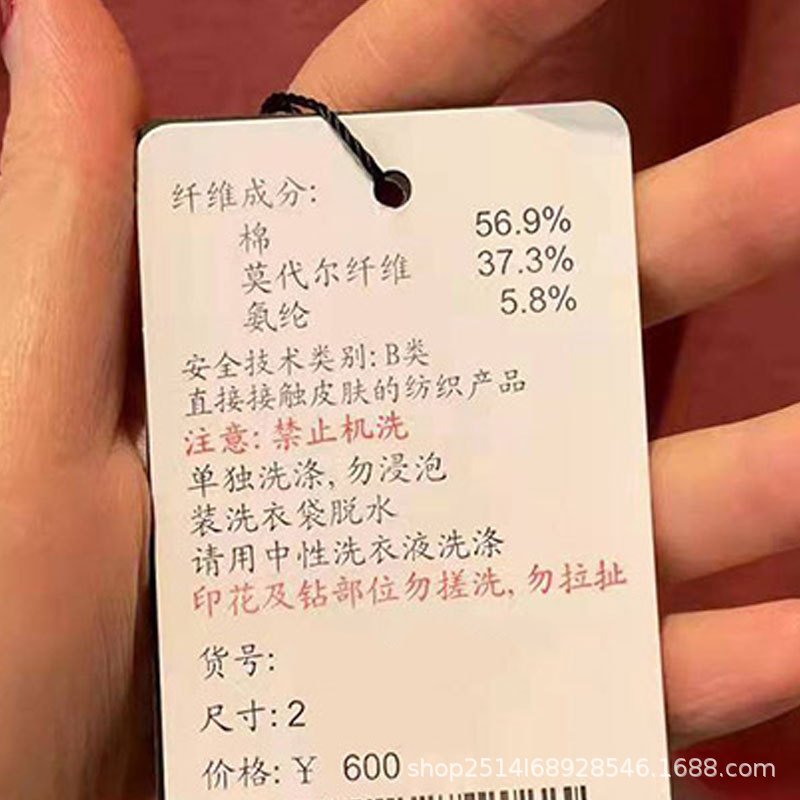 纤维成分:
棉 56.9%
莫代尔纤维 37.3%
氨纶 5.8%
安全技术类别: B类
直接接触皮肤的纺织产品
注意: 禁止机洗
单独洗涤, 勿浸泡
装洗衣袋脱水
请用中性洗衣液洗涤
印花及钻部位勿搓洗, 勿拉扯
货号:
尺寸: 2
价格: ¥ 600
shop2514l68928546.1688.com